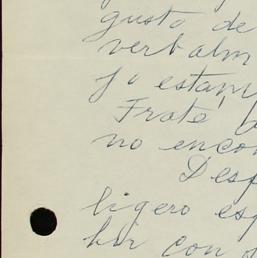 gusto de
verbalm
yo estam
Traté, b
no encon
Desp
ligero esp
bir con s